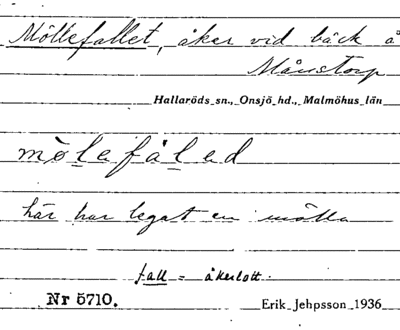 Möllefallet, åker vid bäck å
Månstorp
Hallaröds sn., Onsjö hd., Malmöhus län
mölefåled
här har legat en mölla
fall = åkerlott.
Nr 5710.
Erik Jehpsson 1936